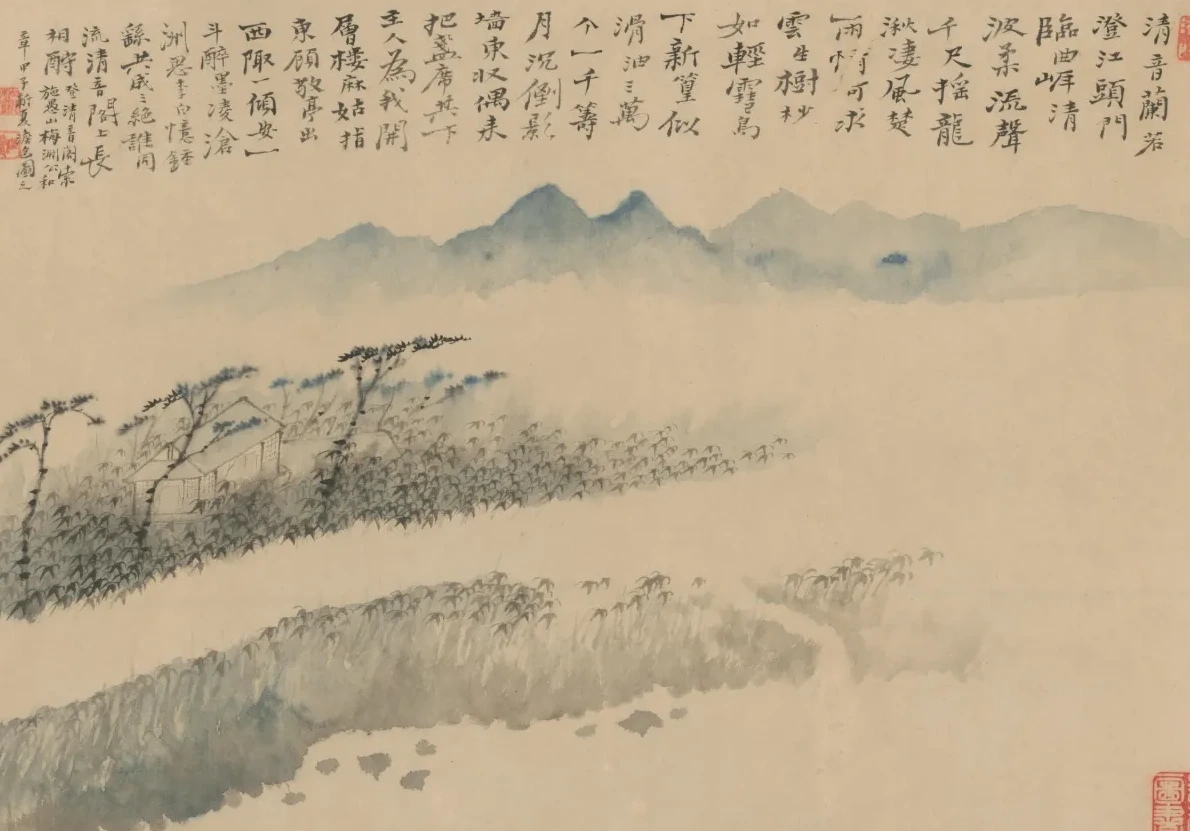 清音蘭若
澄江頭門
臨曲崕清
波柔流聲
千尺搖龍
湫淒風楚
雨情何求
雲生樹杪
如輕雪鳥
下新篁似
滑油三萬
个一千籌
月沉倒影
墻東収偶来
把盞席共下
主人為我開
層樓麻姑指
東顧敬亭出
西陬一傾一
斗醉墨凌滄
洲思李白憶鍾
繇共成三絕誰同
流清音閣上長
相酧
清音閣索
施愚山梅淵公和
年甲子新夏色圖之